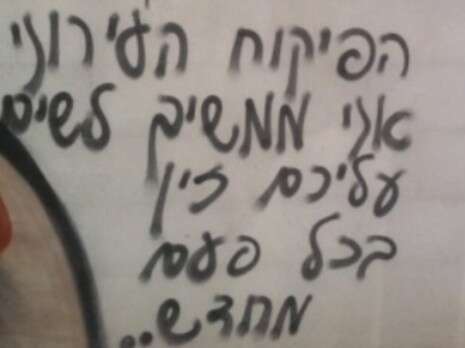 הפיקוח העירוני
אני ממשיך לשים
עליכם זין
בכל פעם
מחדש..